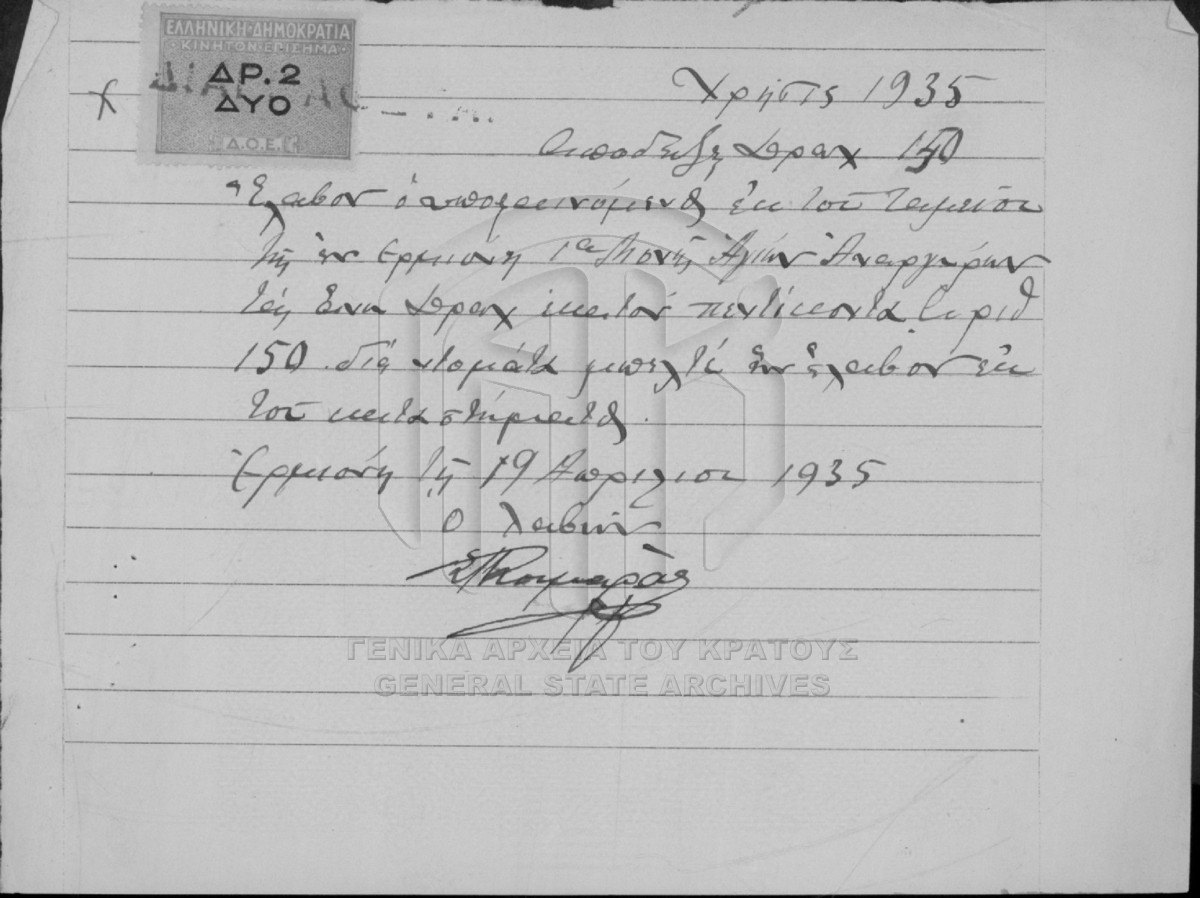 ΕΛΛΗΝΙΚΗ·ΔΗΜΟΚΡΑΤΙΑ
ΚΙΝΗΤΟΝ·ΕΠΙΣΗΜΑ
ΔΡ.2
ΔΥΟ
Δ.Ο.Ε.
Χρήσις 1935
Αποδειξις Δραχ 150
Έλαβον ο υποφαινόμενος εκ του Ταμείου
της εν Ερμιόνη Ιερας Μονής Αγίων Αναργύρων
Δραχ εκατόν πεντίκοντα αριθ
150 δια ντομάτα μπελτέ έλαβον εκ
του καταστήματος.
Ερμιόνη τη 19 Απριλιου 1935
Ο λαβών
ΓΕΝΙΚΑ ΑΡΧΕΙΑ ΤΟΥ ΚΡΑΤΟΥΣ
GENERAL STATE ARCHIVES